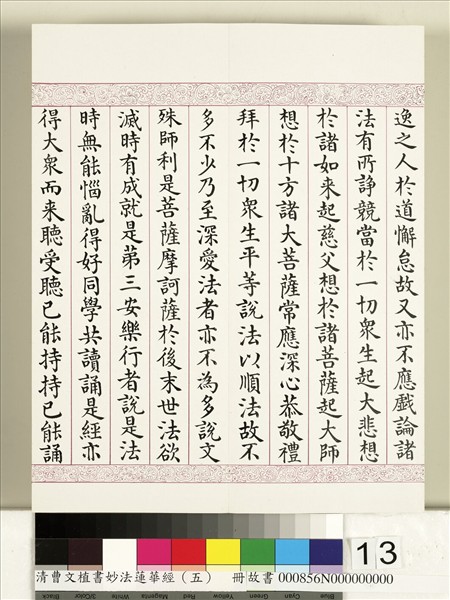 逸之人於道懈怠故又亦不應戲論諸
法有所諍競當於一切眾生起大悲想
於諸如来起慈父想於諸菩薩起大師
想於十方諸大菩薩常應深心恭敬禮
拜於一切眾生平等說法以順法故不
多不少乃至深愛法者亦不為多說文
殊師利是菩薩摩訶薩於後末世法欲
滅時有成就是苐三安樂行者說是法
時無能惱亂得好同學共讀誦是經亦
得大眾而来聽受聽已能持持已能誦
清曹文植書妙法蓮華經（五） 冊故書 000856N000000000
13
Black 3/Color White Magenta Red Yellow Green Cyan Blue